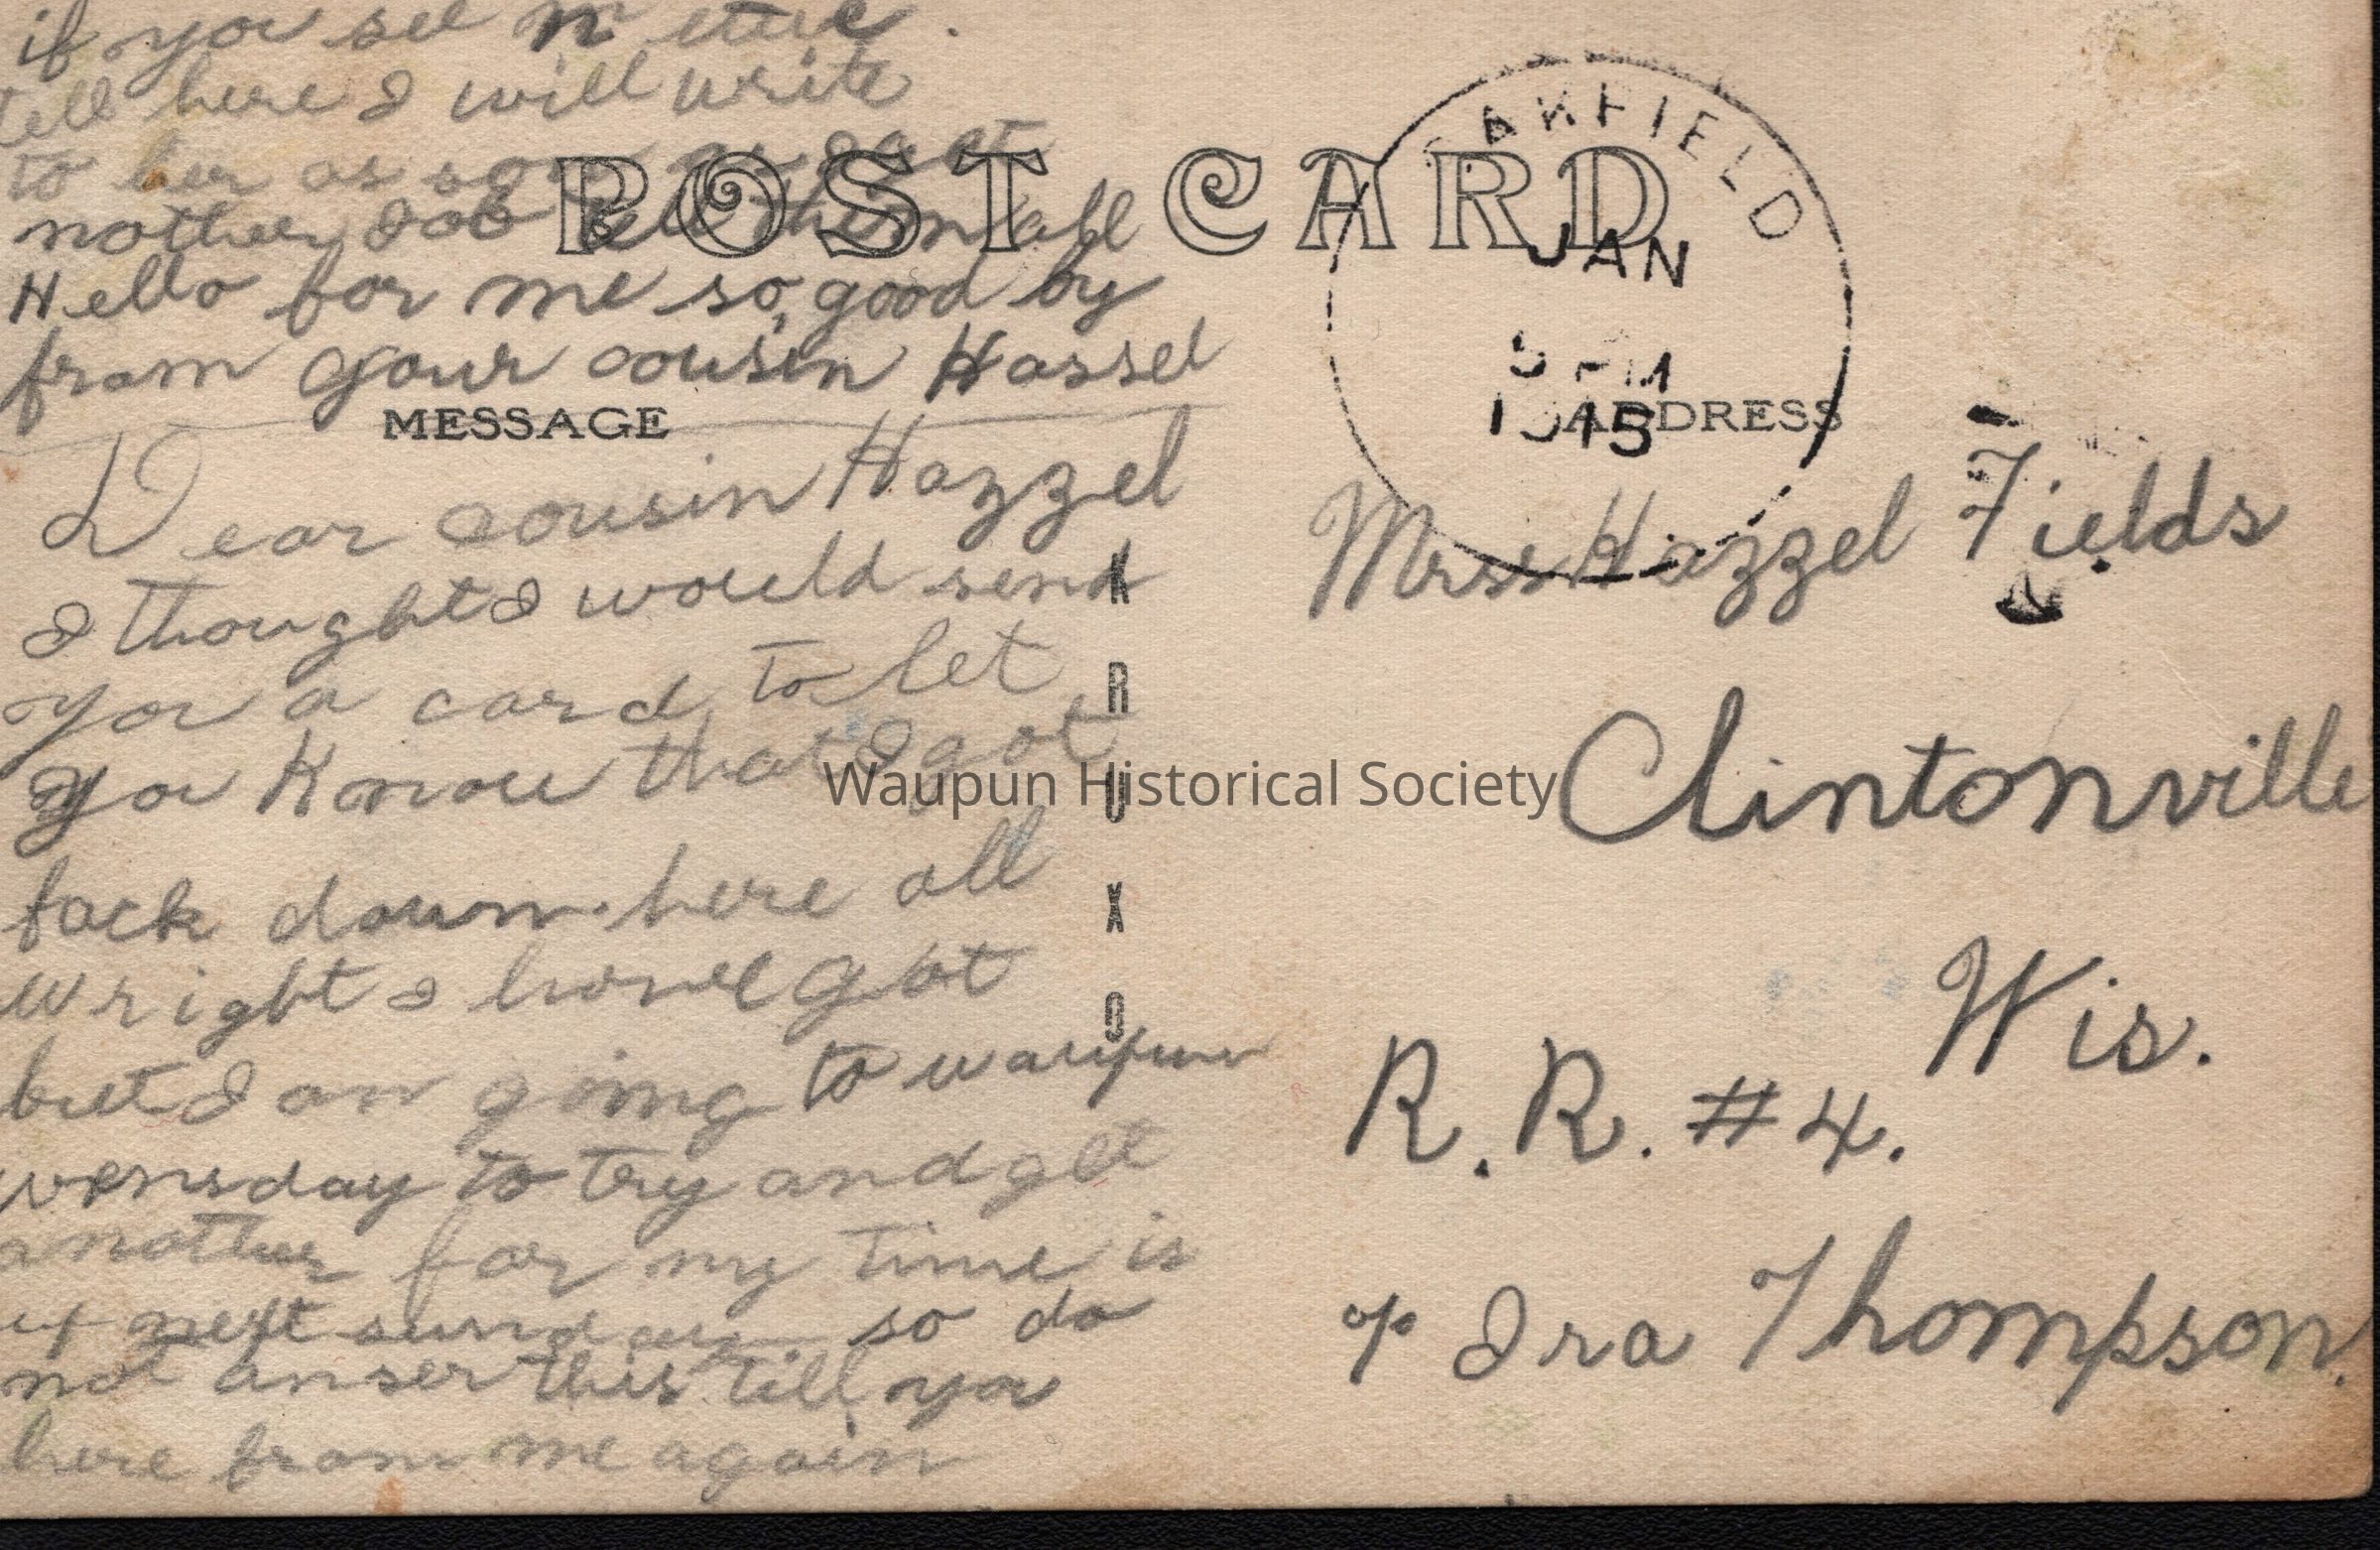 if you see
tell here I will write
to her as soon as I get
nother Job tell them all
Hello for me so good by
from your cousin Hassel
POST CARD
MESSAGE
Dear cousin Hazzel
I thought I would send
you a card to let
you Know that I got
back down here all
Wright I have got
but I an going to waupun
wensday to try and get
another for my time is
up next sunday so do
not anser this till you
here from me again
KRUXO
OAKFIELD
JAN
5 PM
1915
ADDRESS
Mrss Hazzel Fields
Clintonville
Wis.
R. R. #4.
c/o Ira Thompson.
Waupun Historical Society